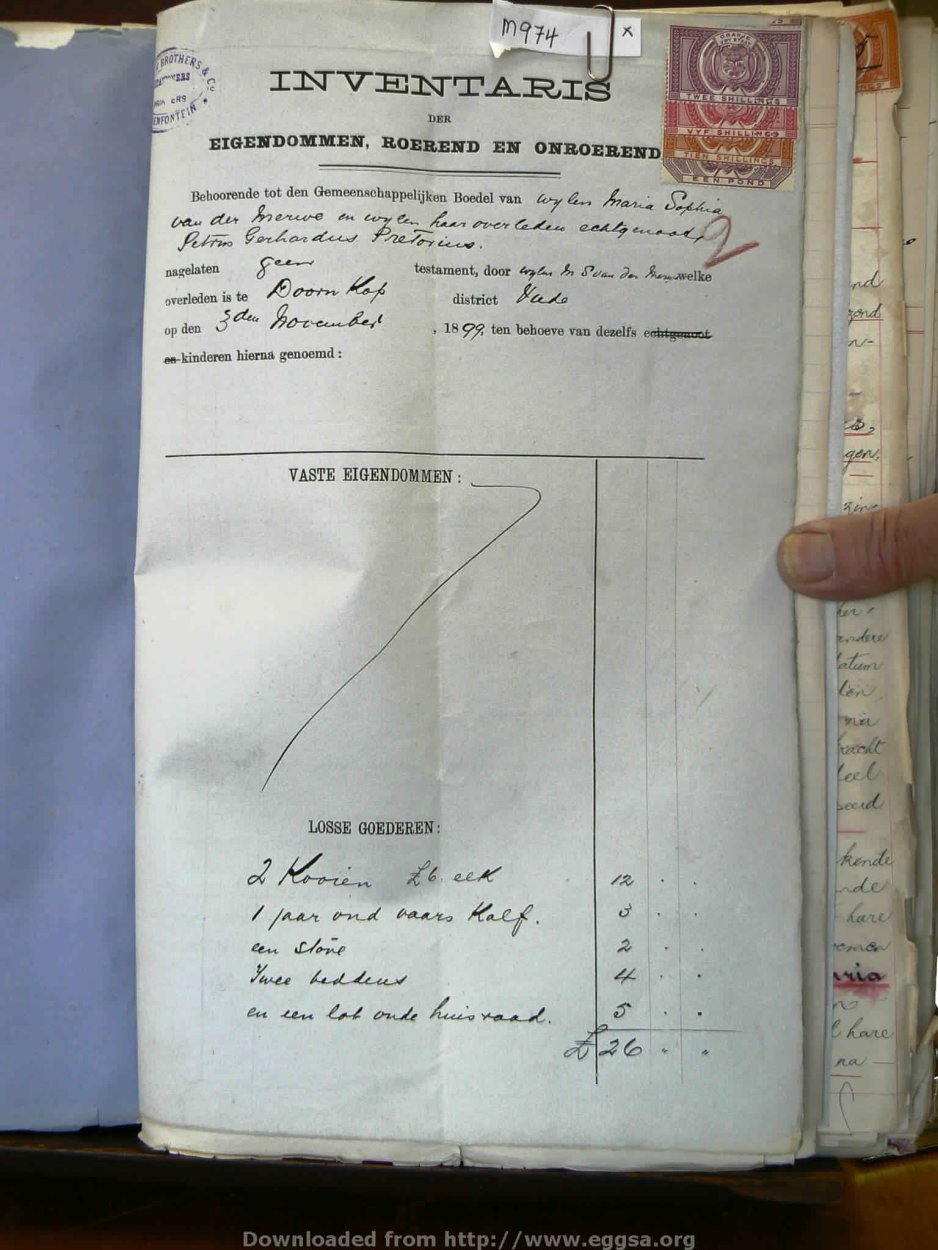 M974 x
BROTHERS & Co
INVENTARIS
DER
EIGENDOMMEN, ROEREND EN ONROEREND
TWEE SHILLINGS
VYF SHILLINGS
TIEN SHILLINGS
EEN POND
Behoorende tot den Gemeenschappelijken Boedel van wylen Maria Sophia
van der Merwe en wylen haar overleden echtgenoot
Petrus Gerhardus Pretorius.
2
nagelaten geen testament, door wylen M S van der Merwe welke
overleden is te Doorn Kop district Vrede
op den 3den November , 1899, ten behoeve van dezelfs echtgenoot
en kinderen hierna genoemd :
VASTE EIGENDOMMEN :
LOSSE GOEDEREN:
2 Kooien £6. elk 12 . .
1 jaar oud vaars Kalf. 3 . .
een stove 2 . .
Twee beddens 4 . .
en een lot oude huisraad. 5 . .
£ 26 " "
nd
zond
gen.
andere
atum
racht
deel
kende
nde
hare
aria
hare
na
Downloaded from http://www.eggsa.org